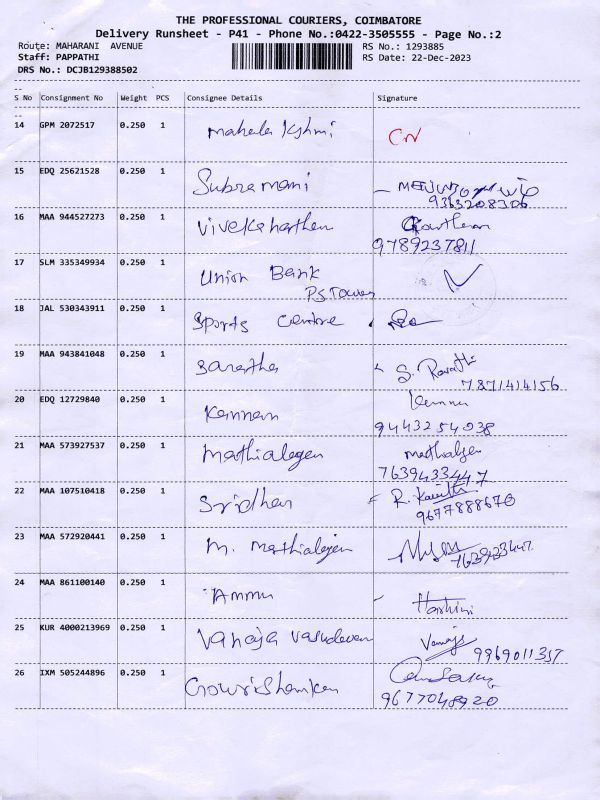 THE PROFESSIONAL COURIERS, COIMBATORE
Delivery Runsheet - P41 - Phone No.:0422-3505555 - Page No.:2
Route: MAHARANI AVENUE RS No.: 1293885
Staff: PAPPATHI RS Date: 22-Dec-2023
DRS No.: DCJB129388502
S No Consignment No Weight PCS Consignee Details Signature
14 GPM 2072517 0.250 1
15 EDQ 25621528 0.250 1 Subramani
9363208306
16 MAA 944527273 0.250 1
9789237811
17 SLM 335349934 0.250 1 Union Bank
P.S. Tower
18 JAL 530343911 0.250 1 Sports Centre
19 MAA 943841048 0.250 1 S. Revathi
7871414156
20 EDQ 12729840 0.250 1 Kannan
9443254038
21 MAA 573927537 0.250 1 Mathialagan
7639433447
22 MAA 107510418 0.250 1 Sridhar
9677888670
23 MAA 572920441 0.250 1 M. Mathialagan
24 MAA 861100140 0.250 1 Ammu Harhini
25 KUR 4000213969 0.250 1 Vanaja Vasudevan Vanaja
9969011357
26 IXM 505244896 0.250 1 Gowrishankar
9677048920